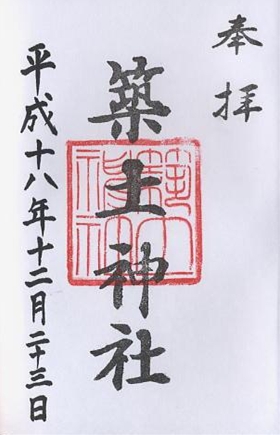 奉拝
築土神社
平成十八年十二月二十三日